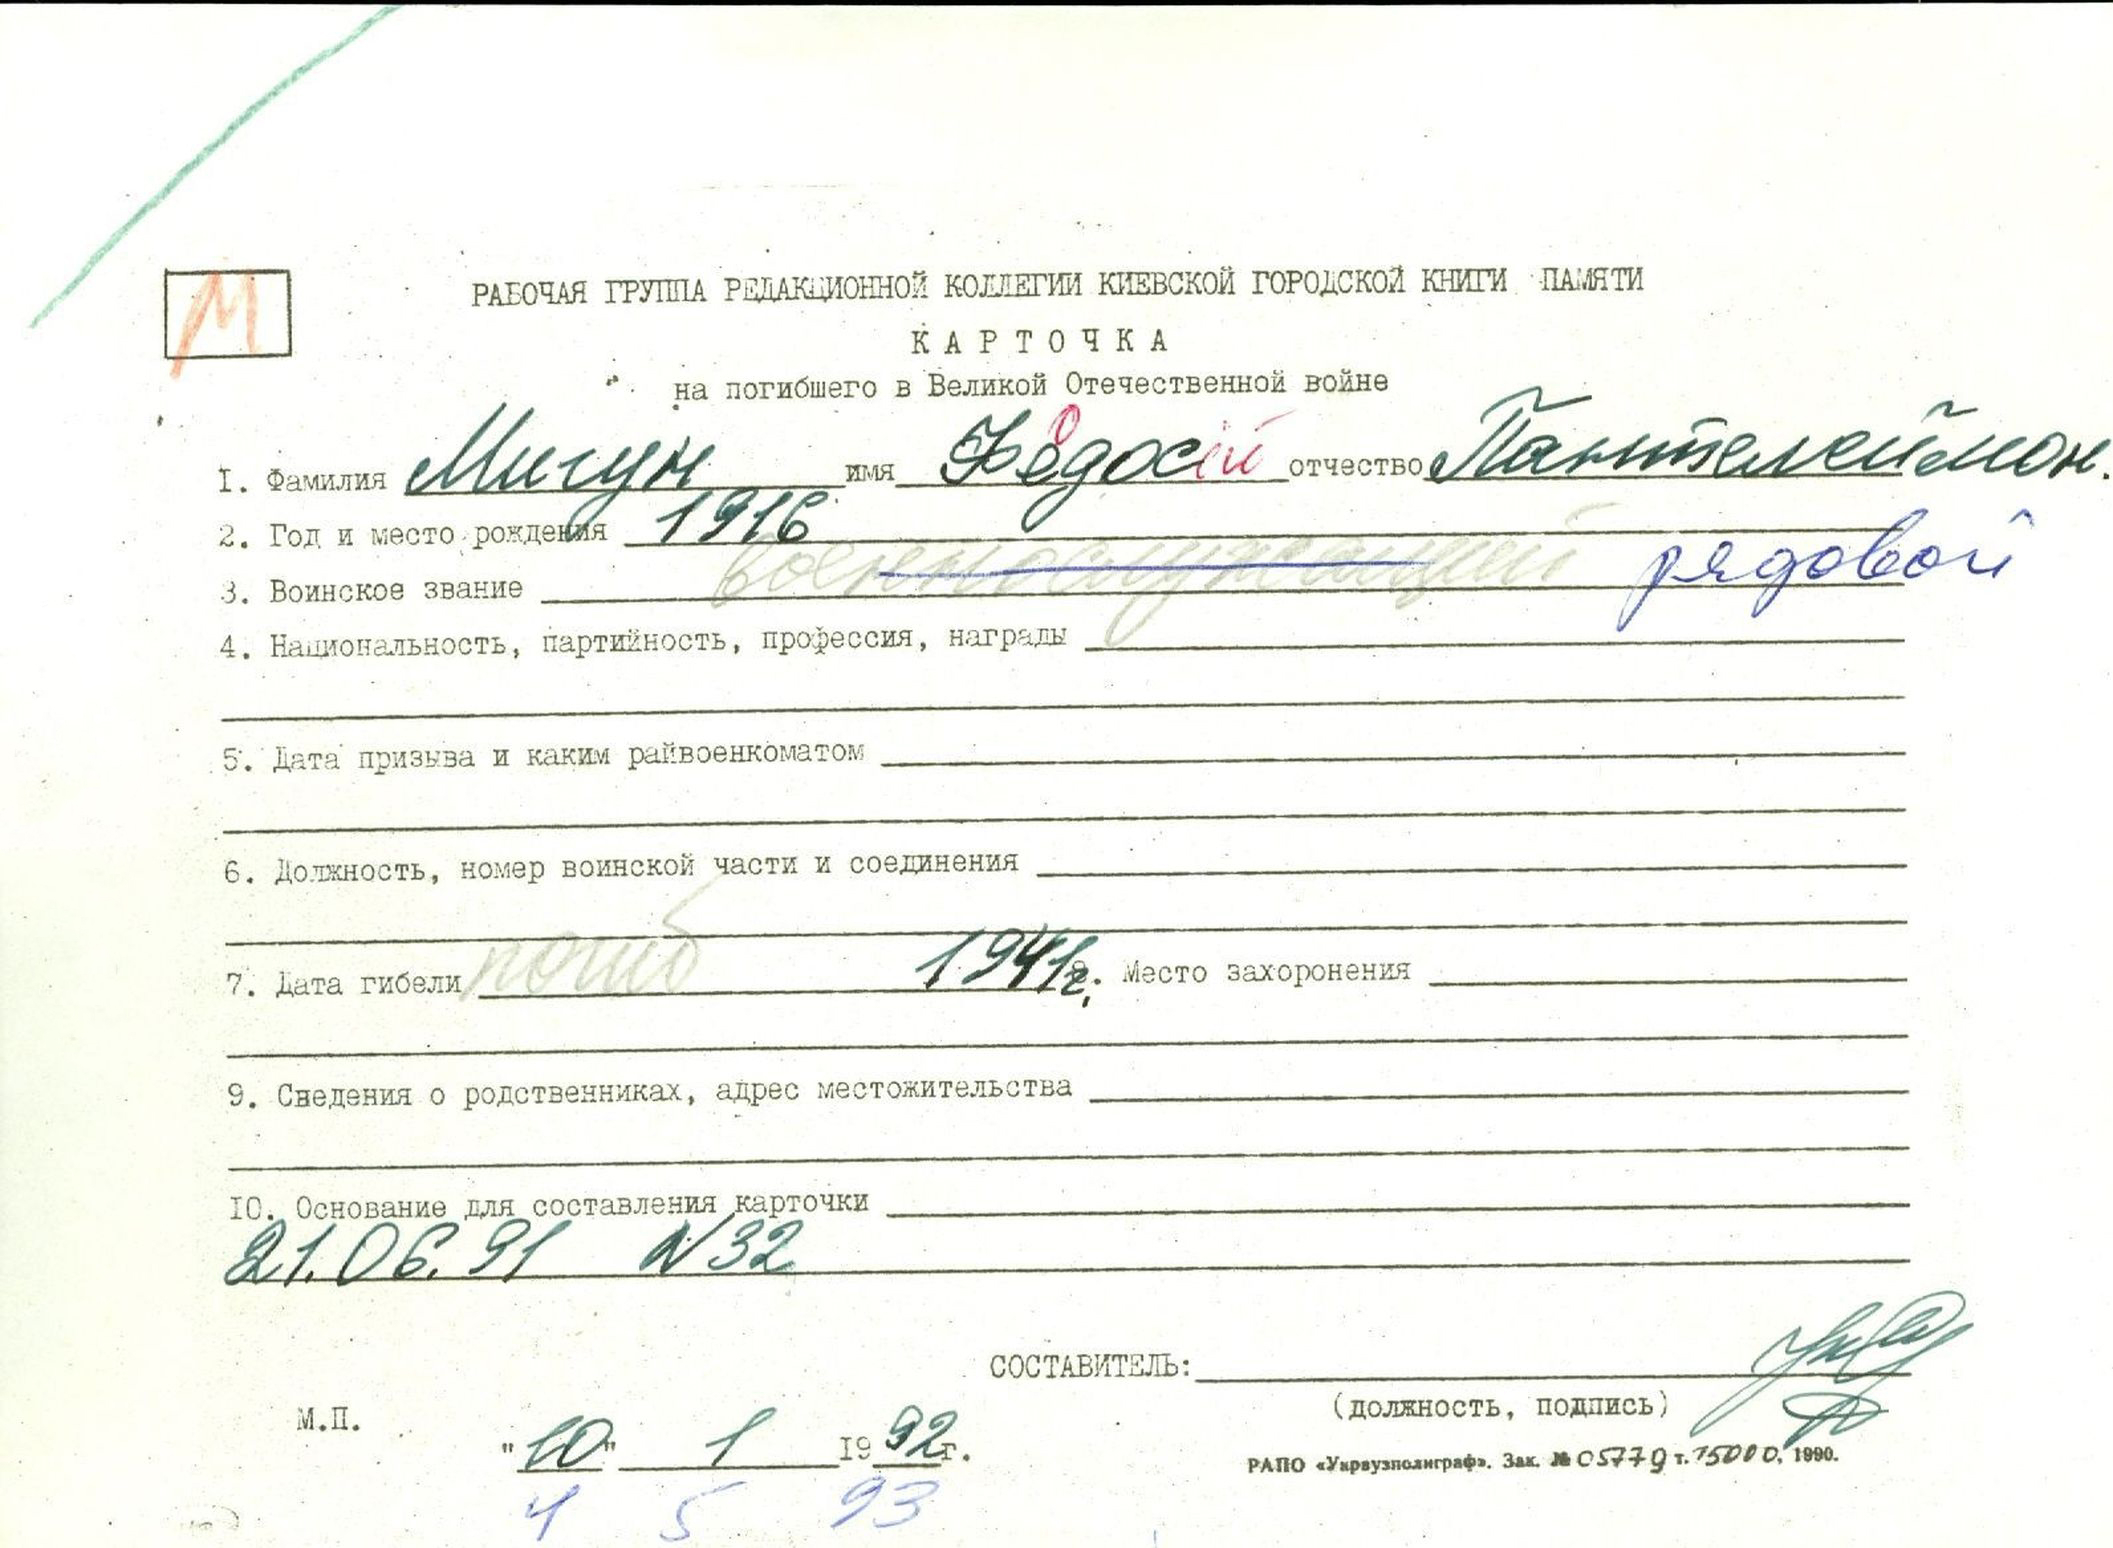 М
РАБОЧАЯ ГРУППА РЕДАКЦИОННОЙ КОЛЛЕГИИ КИЕВСКОЙ ГОРОДСКОЙ КНИГИ ПАМЯТИ
КАРТОЧКА
на погибшего в Великой Отечественной войне
I. Фамилия Мигун имя Федосій отчество Пантелеймон.
2. Год и место рождения 1916
3. Воинское звание военнослужащий рядовой
4. Национальность, партийность, профессия, награды
5. Дата призыва и каким райвоенкоматом
6. Должность, номер воинской части и соединения
7. Дата гибели погиб 1941г. 8. Место захоронения
9. Сведения о родственниках, адрес местожительства
IO. Основание для составления карточки
21.06.91 N32
СОСТАВИТЕЛЬ:
(должность, подпись)
М.П.
"10" 1 1992г.
РАПО «Укрвузполиграф». Зак. № 05779 т. 15000, 1990.
4 5 93